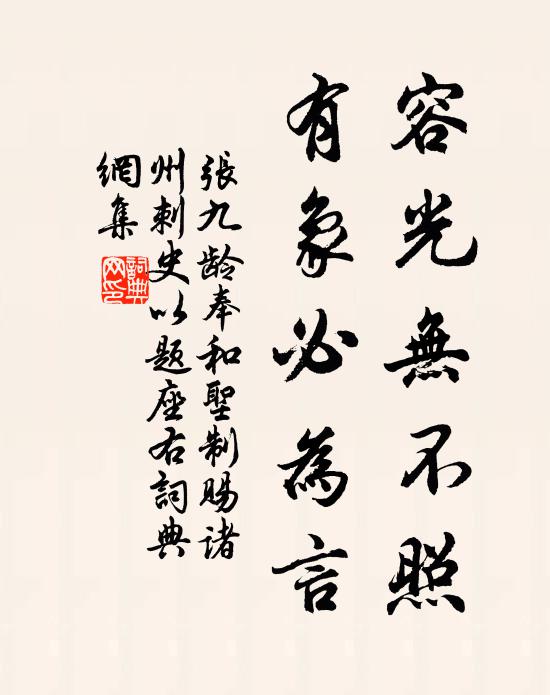 容光無不照
有象必為言
張九龄奉和聖制賜諸
州刺史以題座右詞典
網集
詞典網印